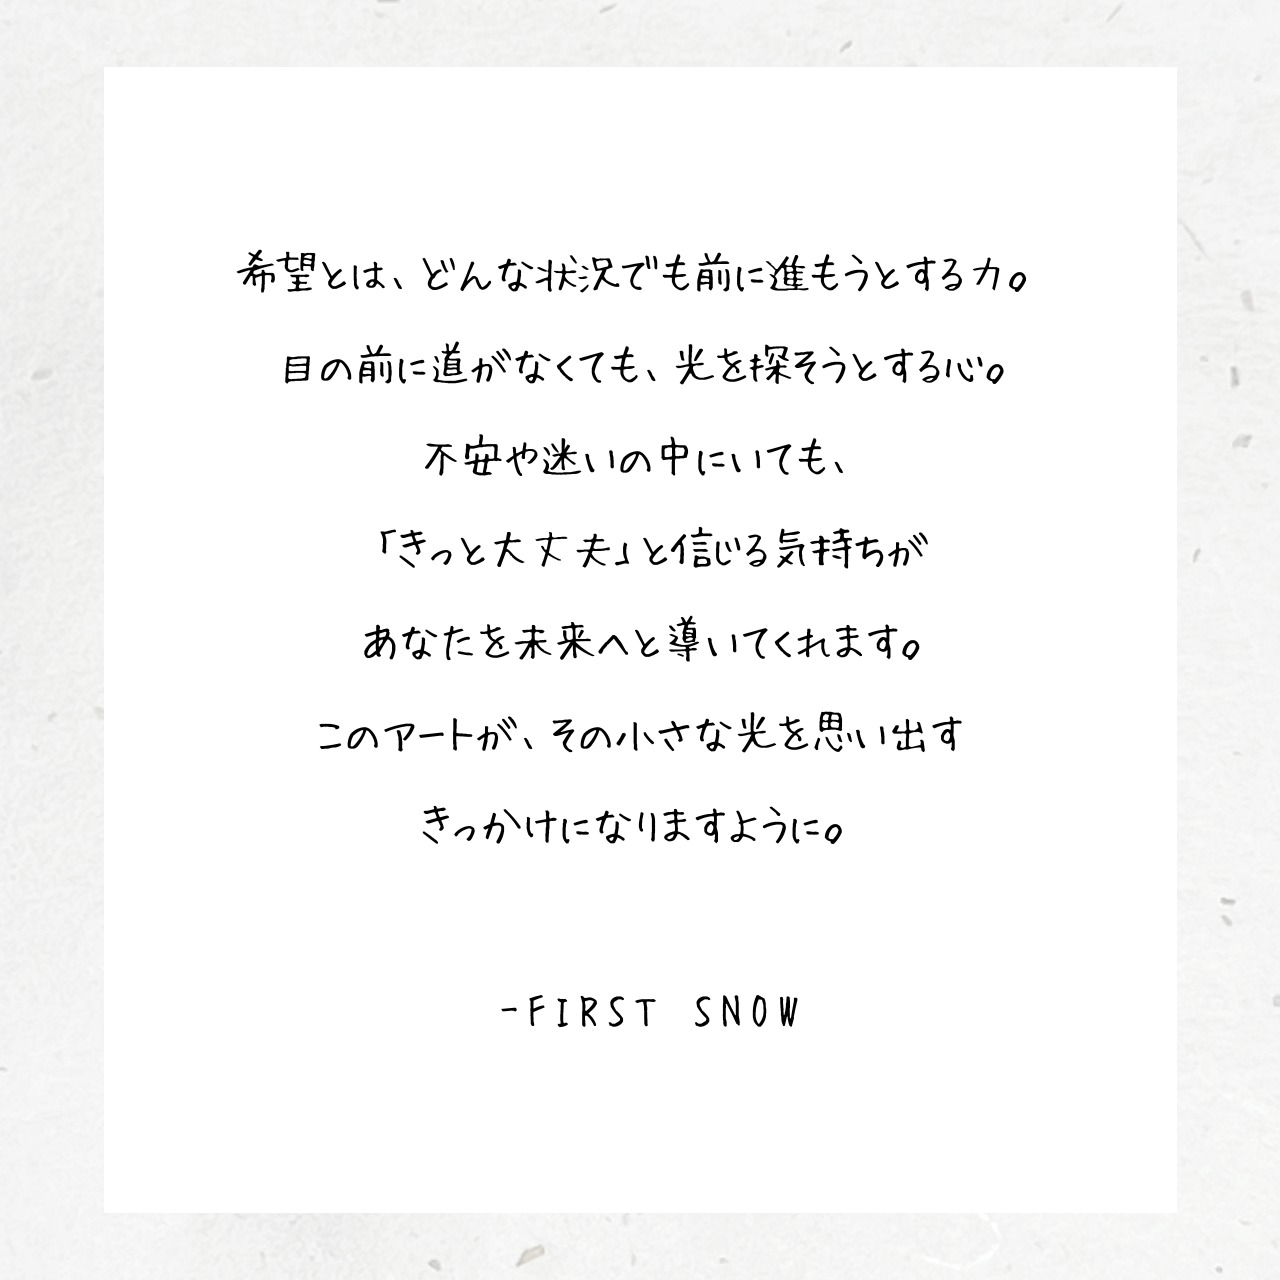 希望とは、どんな状況でも前に進もうとする力。
目の前に道がなくても、光を探そうとする心。
不安や迷いの中にいても、
「きっと大丈夫」と信じる気持ちが
あなたを未来へと導いてくれます。
このアートが、その小さな光を思い出す
きっかけになりますように。
-FIRST SNOW